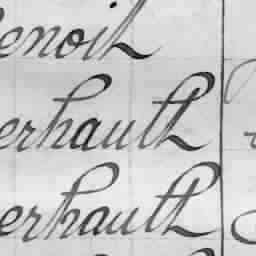 enoit
erhault
erhault